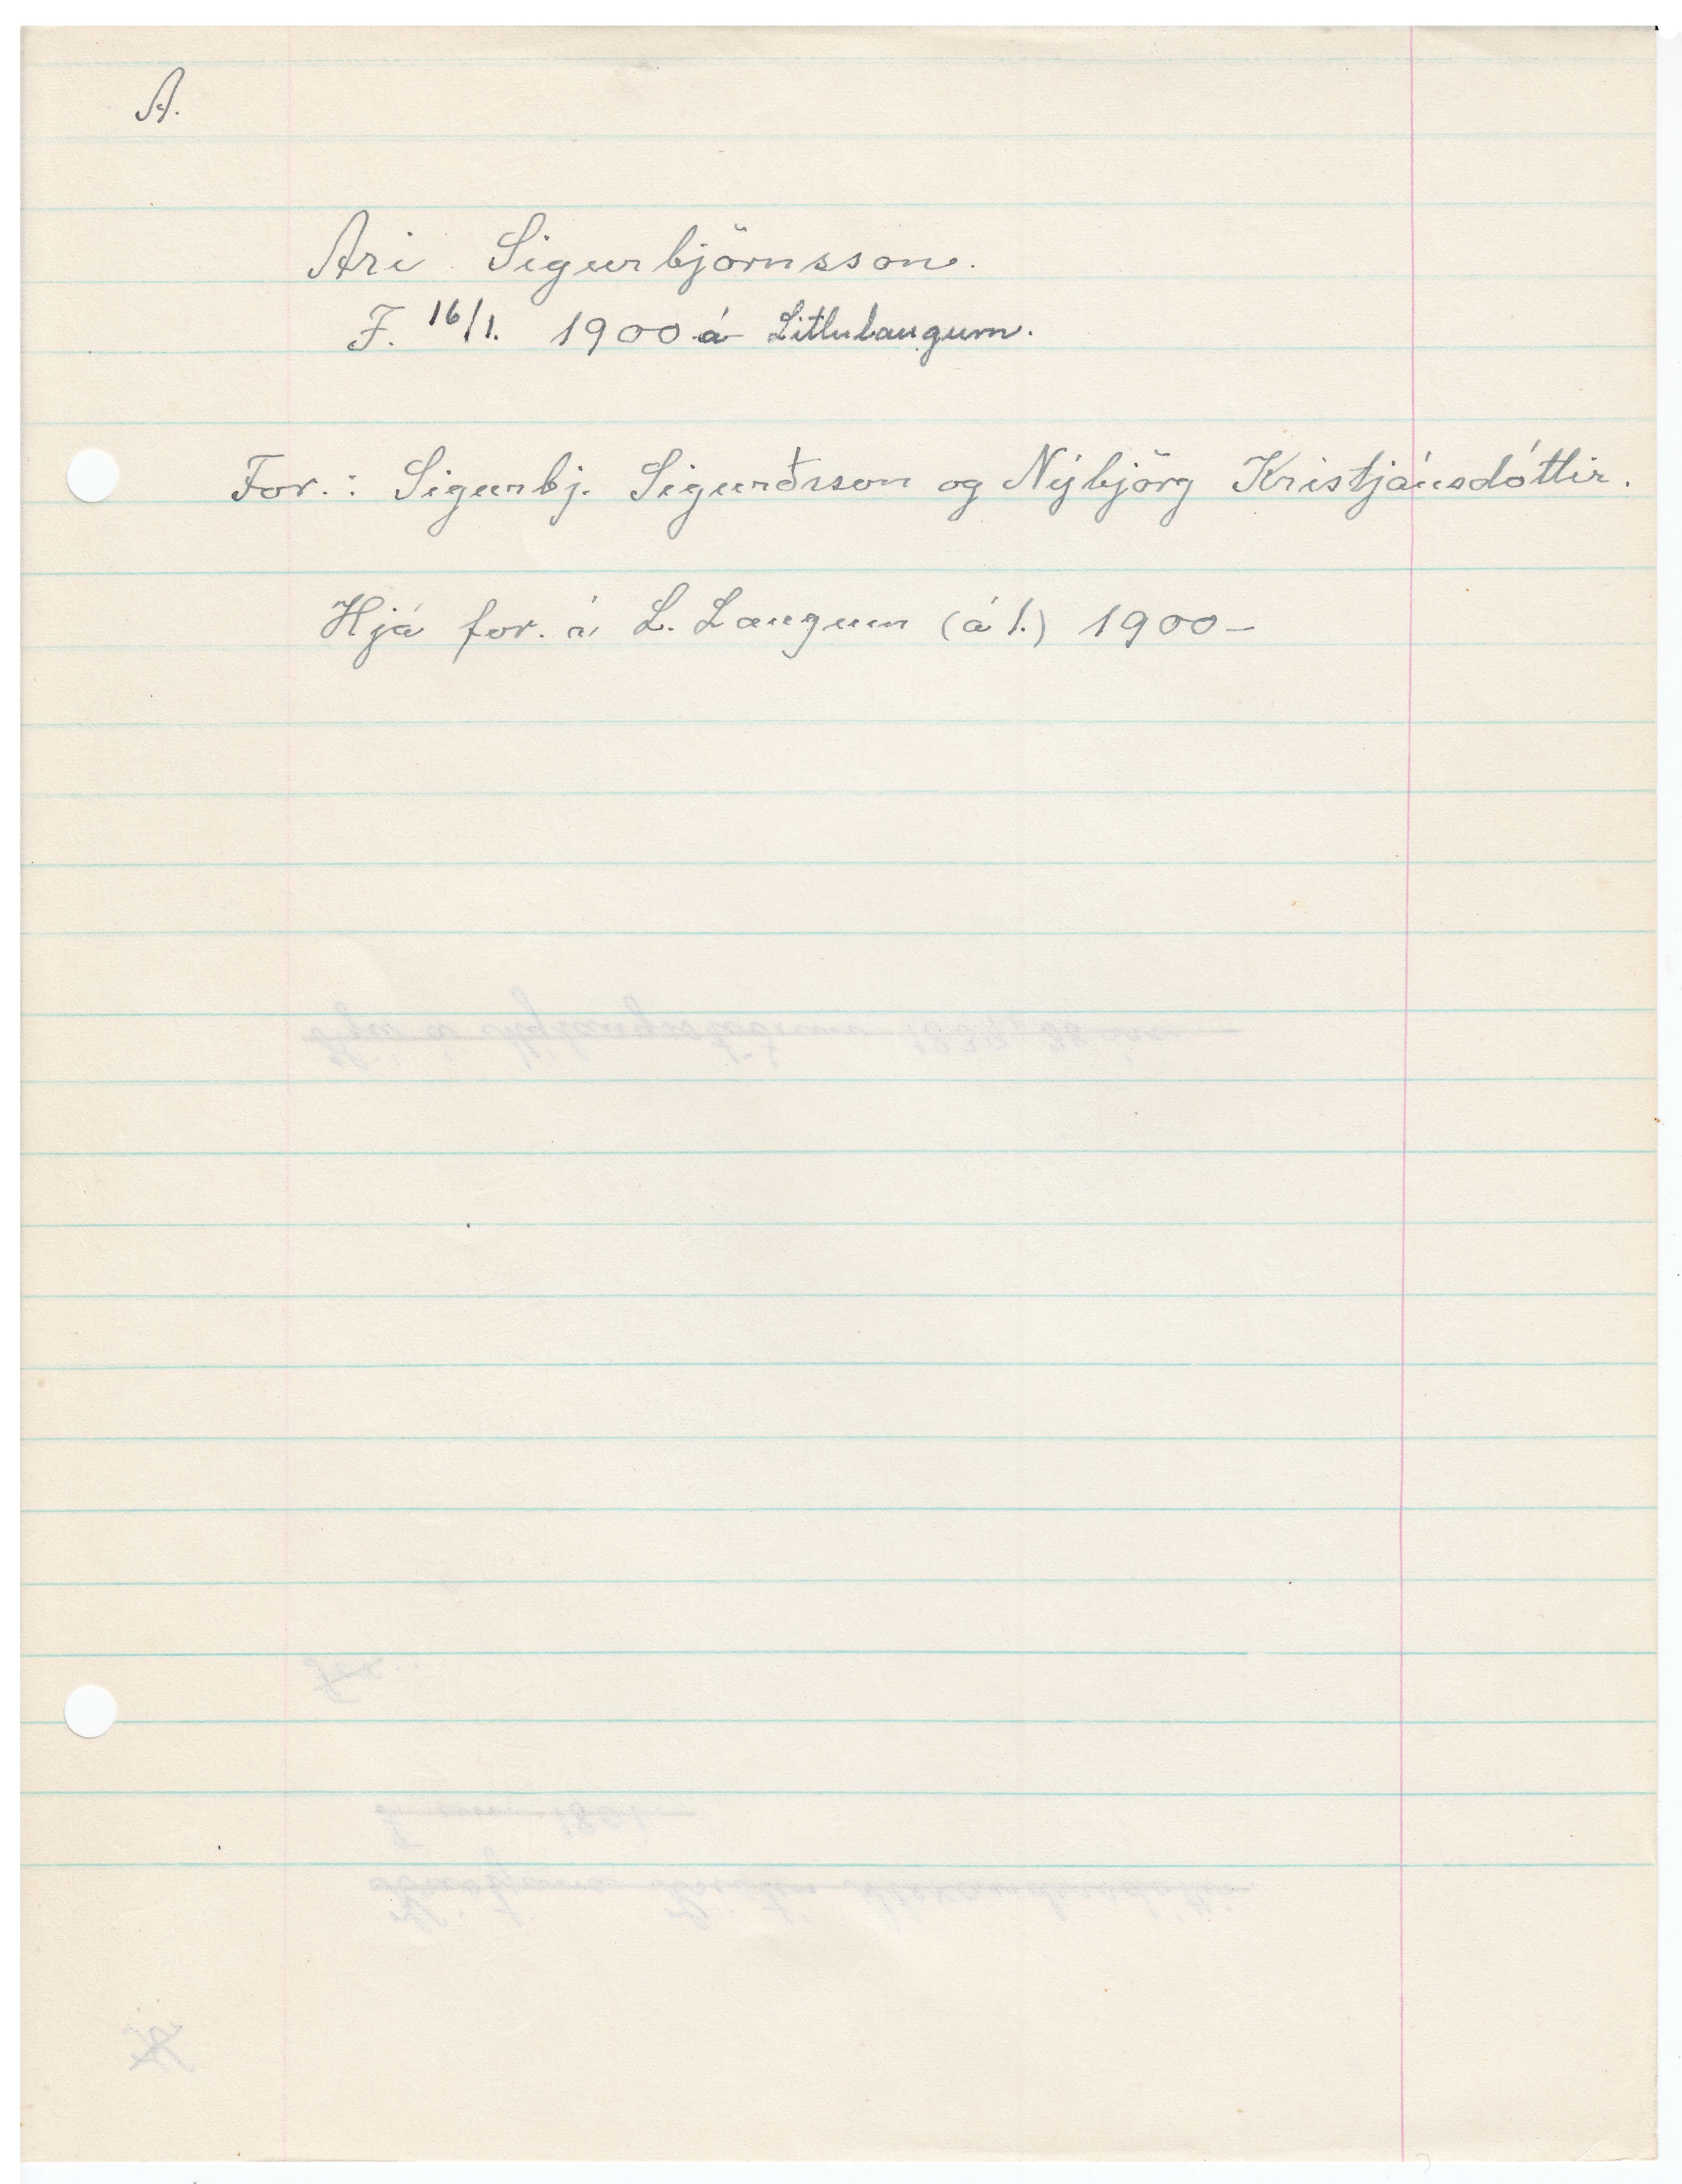 A.
Ari Sigurbjörnsson.
F. 16/1. 1900 á Litlulaugum.
For.: Sigurbj. Sigurðsson og Nýbjörg Kristjánsdóttir.
Hjá for. á L. Laugum (á 1.) 1900-